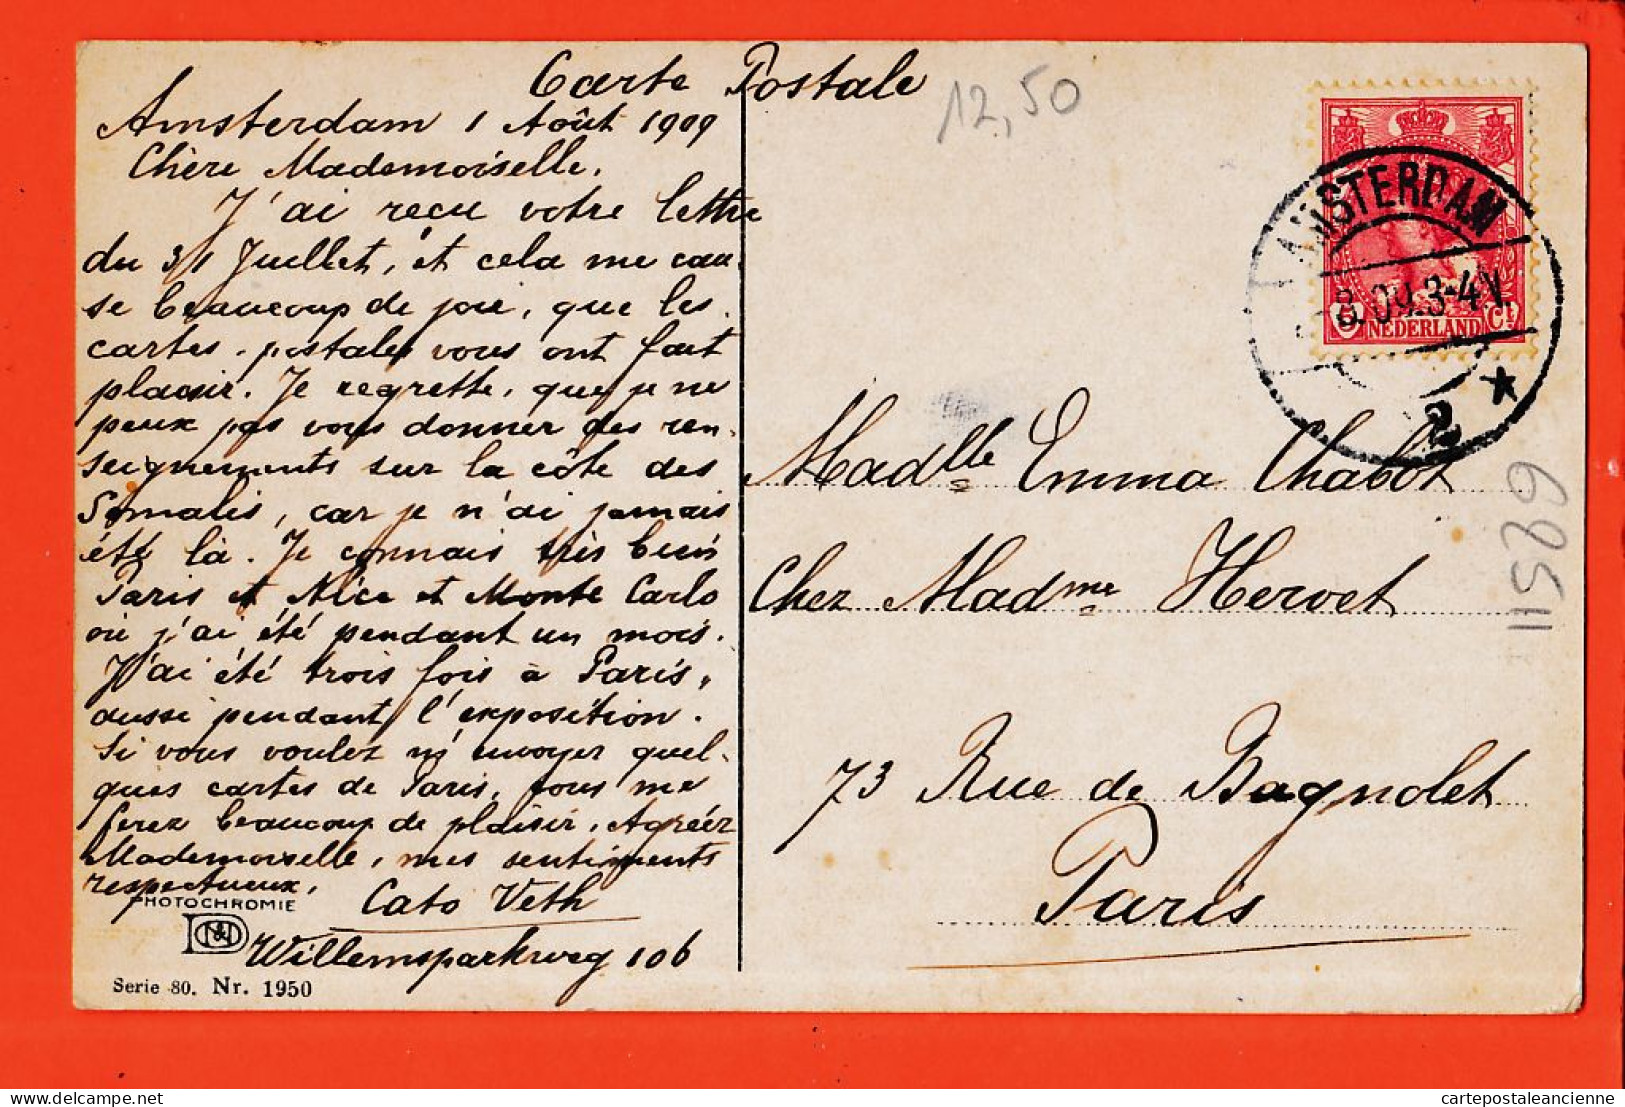 Carte Postale
12,50
Amsterdam 1 Août 1909
Chère Mademoiselle.
J'ai reçu votre lettre
du 31 Juillet, et cela me cau-
se beaucoup de joie, que les
cartes postales vous ont fait
plaisir. Je regrette, que je ne
peux pas vous donner des ren-
seignements sur la côte des
Somalis, car je n'ai jamais
été là. Je connais très bien
Paris et Nice et Monte Carlo
où j'ai été pendant un mois.
J'ai été trois fois à Paris,
aussi pendant l'exposition.
Si vous voulez m'envoyer quel-
ques cartes de Paris, vous me
ferez beaucoup de plaisir. Agréez
Mademoiselle, mes sentiments
respectueux,
Cato Veth
Willemsparkweg 106
PHOTOCHROMIE
Serie 80. Nr. 1950
AMSTERDAM
8.09.3-4V.
2
NEDERLAND
5 Ct
Madlle Emma Chabot
Chez Madme Hervet
73 Rue de Bagnolet
Paris
11589
delcampe.net
cartepostaleancienne